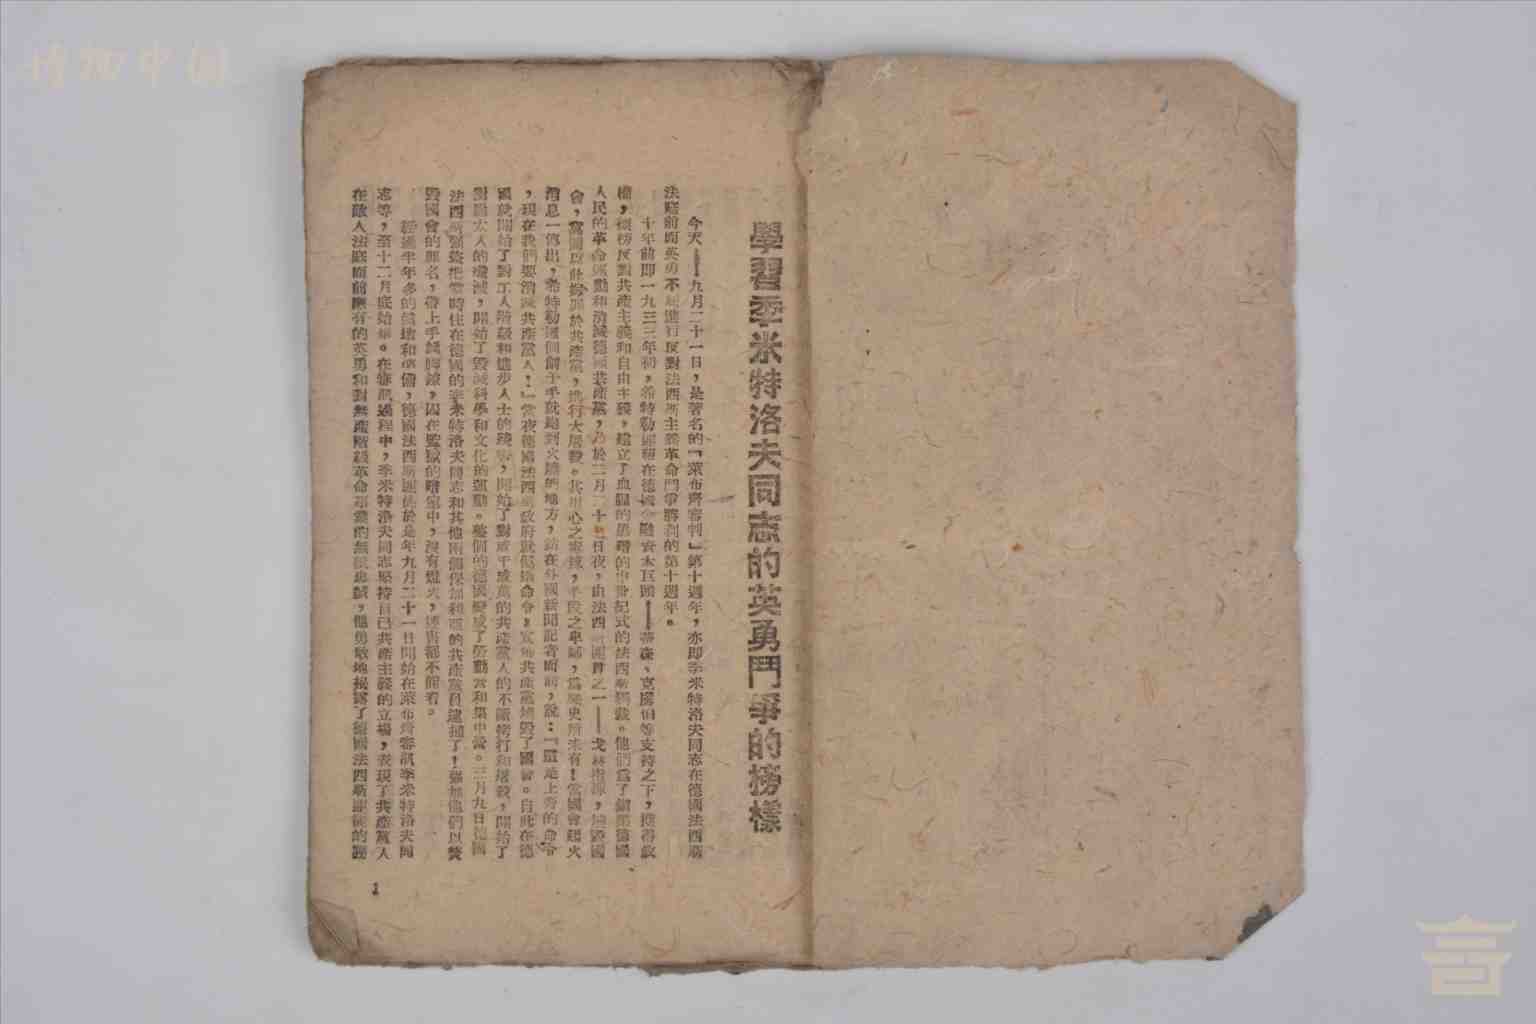 學習季米特洛夫同志的英勇鬥爭的榜樣
今天——九月二十一日，是著名的「萊布齊審判」第十週年，亦即季米特洛夫同志在德國法西斯
法庭前面英勇不屈進行反對法西斯主義革命鬥爭勝利的第十週年。
十年前即一九三三年初，希特勒匪幫在德國金融資本巨頭——蒂森、克虜伯等支持之下，獲得政
權，標榜反對共產主義和自由主義，建立了血腥的黑暗的中世紀式的法西斯獨裁。他們為了鎮壓德國
人民的革命運動和消滅德國共產黨，乃於二月二十七日夜，由法西斯匪首之一——戈林指揮，燒毀國
會，當國以此嫁罪於共產黨，進行大屠殺。其用心之毒辣，手段之卑鄙，為歷史所未有！當國會起火
消息一傳出，希特勒這個劊子手就跑到火燒的地方，站在外國新聞記者面前，說：『這是上帝的命令
，現在我們要消滅共產黨人！』當夜德國法西斯政府就假造命令，宣佈共產黨燒毀了國會。自此在德
國就開始了對工人階級和進步人士的殘害，開始了對成千成萬的共產黨人的不斷拷打和屠殺，開始了
對猶太人的殲滅，開始了毀滅科學和文化的運動。整個的德國變成了勞動營和集中營。三月九日德國
法西斯強盜把當時住在德國的季米特洛夫同志和其他兩個保加利亞的共產黨員逮捕了！強加他們以焚
毀國會的罪名，帶上手銬腳鐐，囚在監獄的暗室中，沒有燈火，連書都不能看。
經過半年多的偽造和準備，德國法西斯匪徒於是年九月二十一日開始在萊布齊審訊季米特洛夫同
志等，至十二月底始畢。在審訊過程中，季米特洛夫同志堅持自己共產主義的立場，表現了共產黨人
在敵人法庭面前應有的英勇和對無產階級革命事業的無限忠誠，他勇敢地揭露了德國法西斯匪徒的謊
1